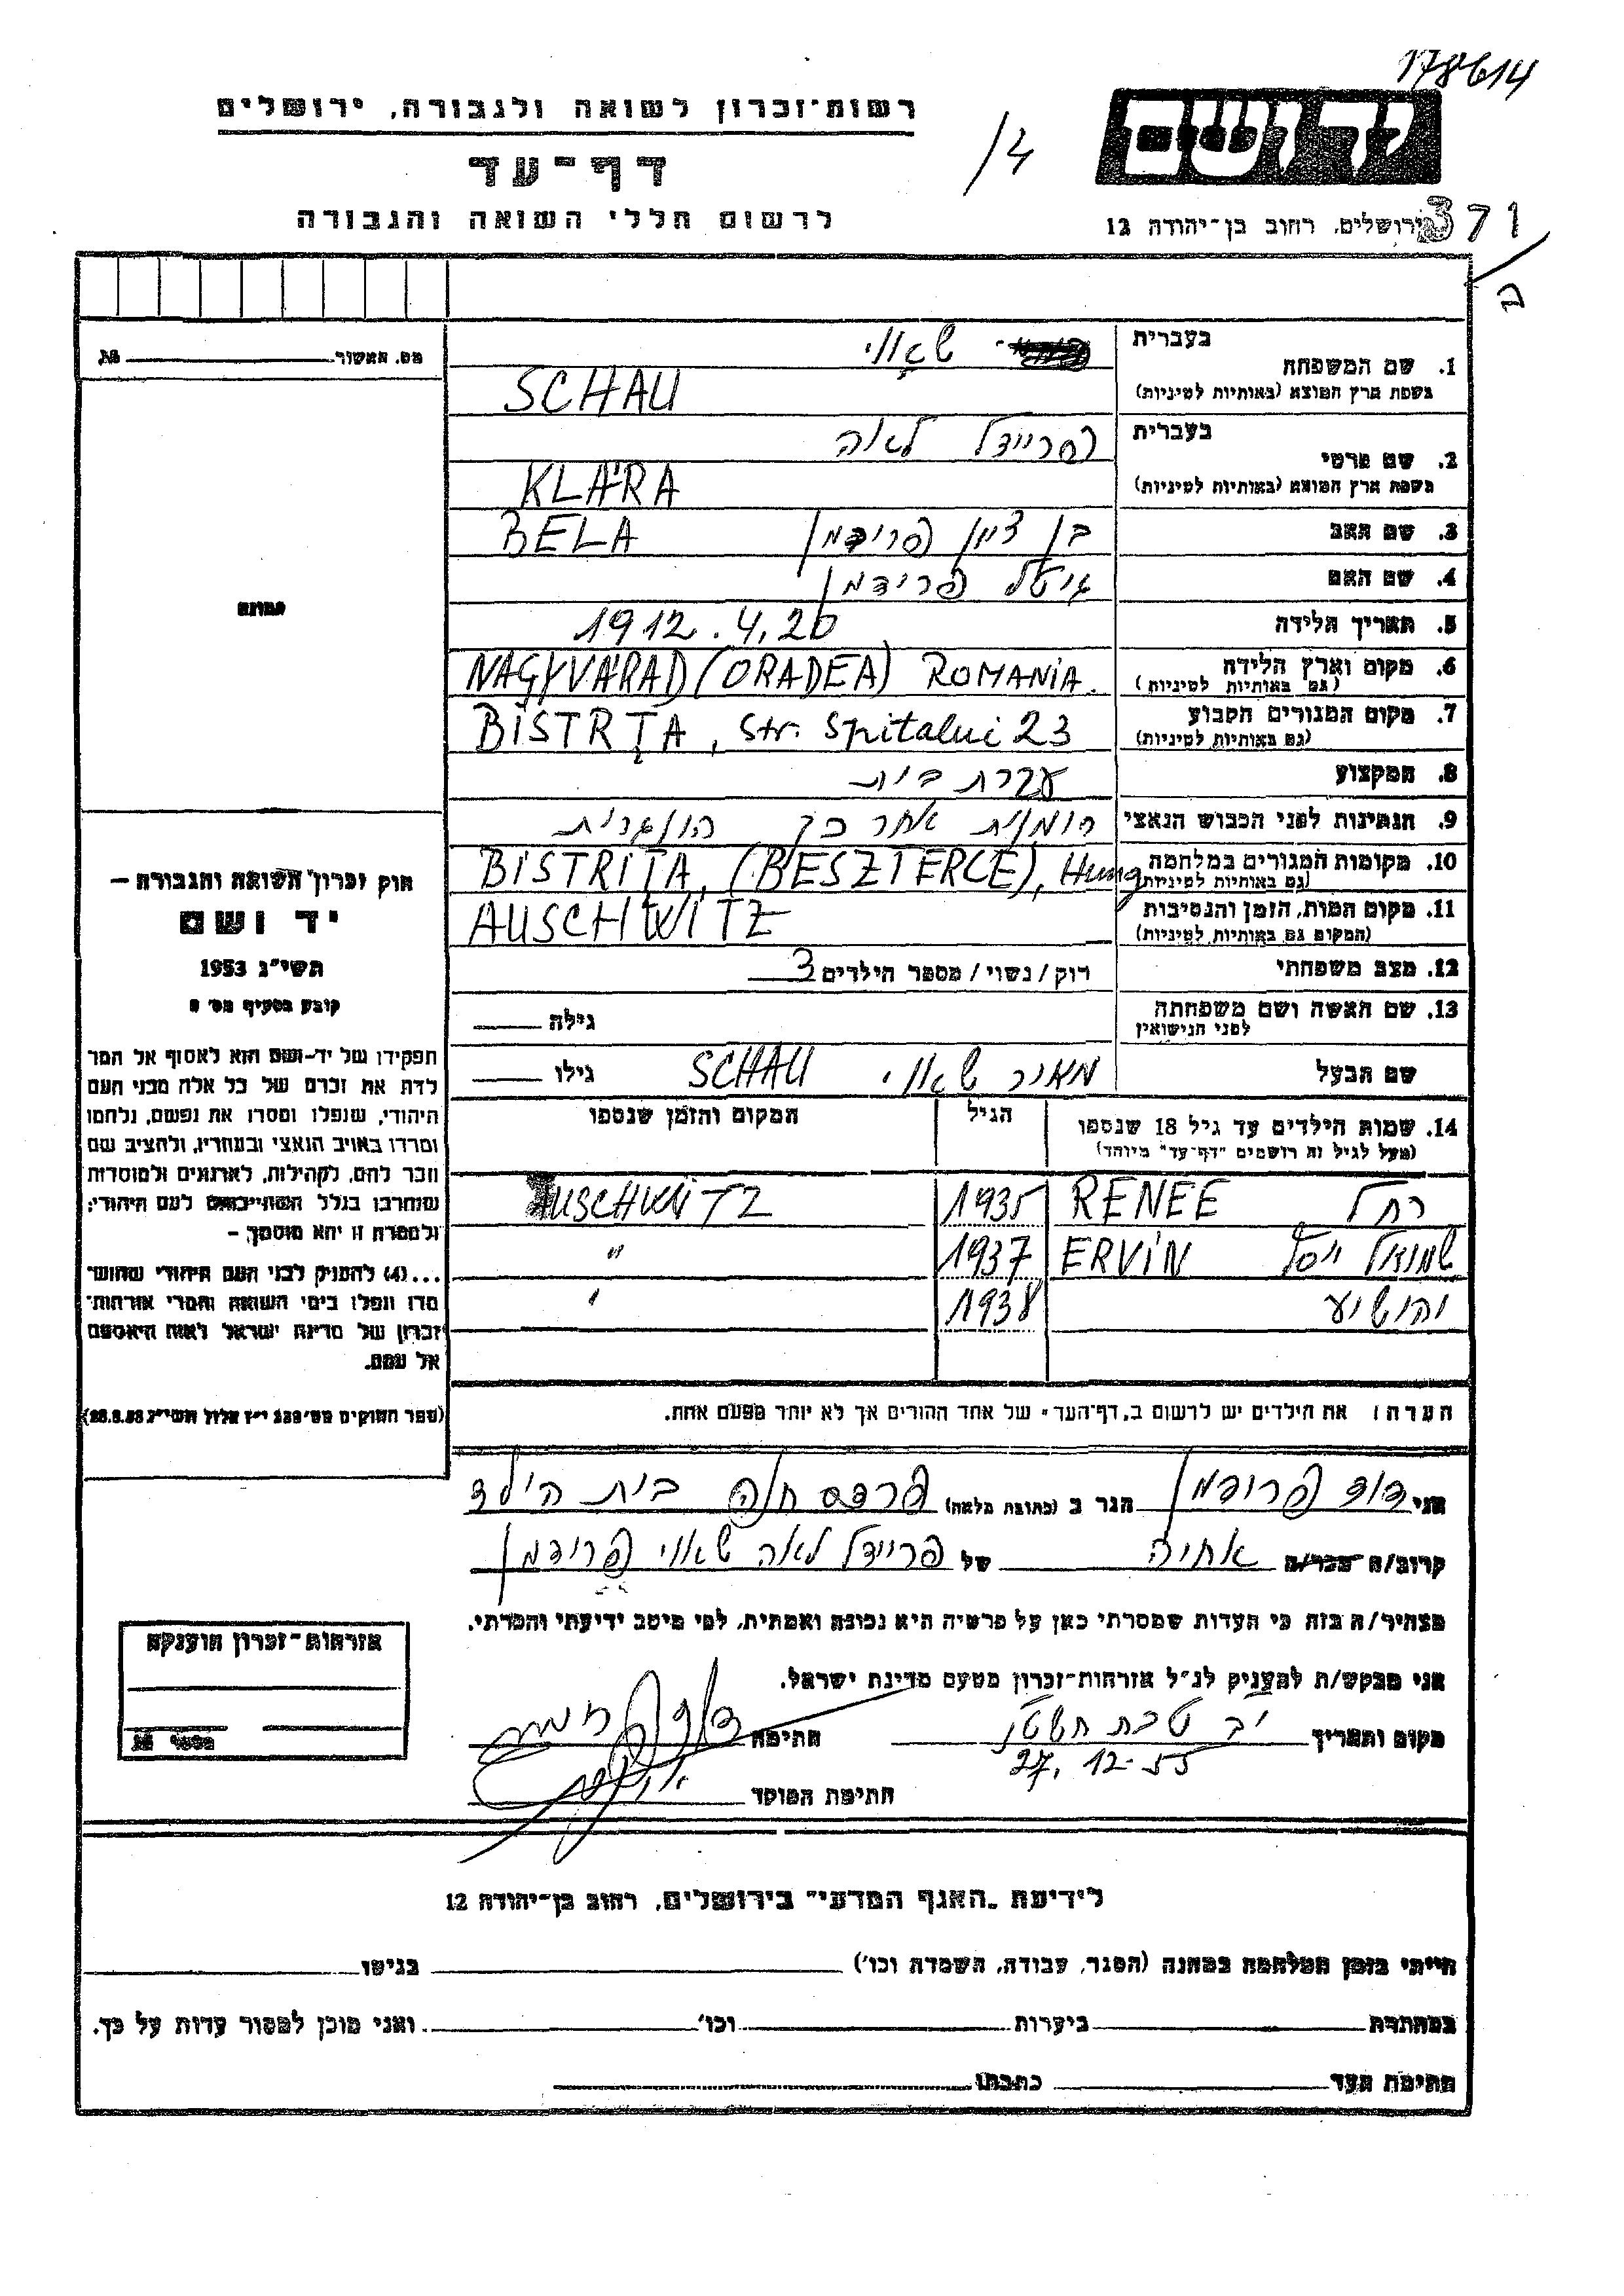 178614
רשות-זכרון לשואה ולגבורה, ירושלים
יד ושם
דף-עד
לרשום חללי השואה והגבורה
ירושלים, רחוב בן-יהודה 12
371
מס. האשור № 
1. שם המשפחה
בעברית
שאוי
בשפת ארץ המוצא (באותיות לטיניות)
SCHAU
2. שם פרטי
בעברית
פריידל לאה
בשפת ארץ המוצא (באותיות לטיניות)
KLÁRA
3. שם האב
בן ציון פרידמן BELA
4. שם האם
גיטל פרידמן
5. תאריך הלידה
1912.4.20
6. מקום וארץ הלידה
(גם באותיות לטיניות)
NAGYVÁRAD (ORADEA) ROMANIA.
7. מקום המגורים הקבוע
(גם באותיות לטיניות)
BISTRȚA, Str. Spitalui 23
8. המקצוע
עקרת בית
9. הנתינות לפני הכבוש הנאצי
רומנית אחר כך הונגרית
10. מקומות המגורים במלחמה
(גם באותיות לטיניות)
BISTRIȚA, (BESZTERCE), Hung
11. מקום המות, הזמן והנסיבות
(המקום גם באותיות לטיניות)
AUSCHWITZ
12. מצב משפחתי
רוק/נשוי/מספר הילדים 3
13. שם האשה ושם משפחתה
לפני הנישואין
גילה
שם הבעל
מאיר שאוי SCHAU גילו
14. שמות הילדים עד גיל 18 שנספו
(מעל לגיל זה רושמים "דף-עד" מיוחד)
הגיל
המקום והזמן שנספו
רחל RENEE 1935 AUSCHWITZ
שמואל יוסף ERVIN 1937 "
יהושע 1938 "
הערה: את הילדים יש לרשום ב"דף-העד" של אחד ההורים אך לא יותר מפעם אחת.
תמונה
חוק זכרון השואה והגבורה —
יד ושם
תשי"ג 1953
קובע בסעיף מס'
תפקידו של יד-ושם הוא לאסוף אל המו
לדת את זכרם של כל אלה מבני העם
היהודי, שנפלו ומסרו את נפשם, נלחמו
ומרדו באויב הנאצי ובעוזריו, ולהציב שם
וזכר להם, לקהילות, לארגונים ולמוסדות
שנחרבו בגלל השתייכותם לעם היהודי;
ולמטרה זו יהא מוסמך, —
...(4) להעניק לבני העם היהודי שהוש-
מדו ונפלו בימי השואה והמרי אזרחות-
זכרון של מדינת ישראל לאות היאספם
אל עמם.
אני דוד פרידמן הגר ב (כתובת מלאה) פרדס חנה בית הילד
קרוב/ה מכר/ה אחיה של פריידל לאה שאוי פרידמן
מצהיר/ה בזה כי העדות שמסרתי כאן על פרטיה היא נכונה ואמתית, לפי מיטב ידיעתי והכרתי.
אני מבקש/ת להעניק לנ"ל אזרחות-זכרון מטעם מדינת ישראל.
מקום ותאריך יב טבת תשט"ז
27.12-55
חתימה
חתימת המוסד
אזרחות-זכרון הוענקה
מספר №
לידיעת "האגף המדעי" בירושלים, רחוב בן-יהודה 12
הייתי בזמן המלחמה במחנה (הסגר, עבודה, השמדה וכו') בגיטו
במחתרת ביערות וכו' ואני מוכן למסור עדות על כך.
חתימת העד כתבתו